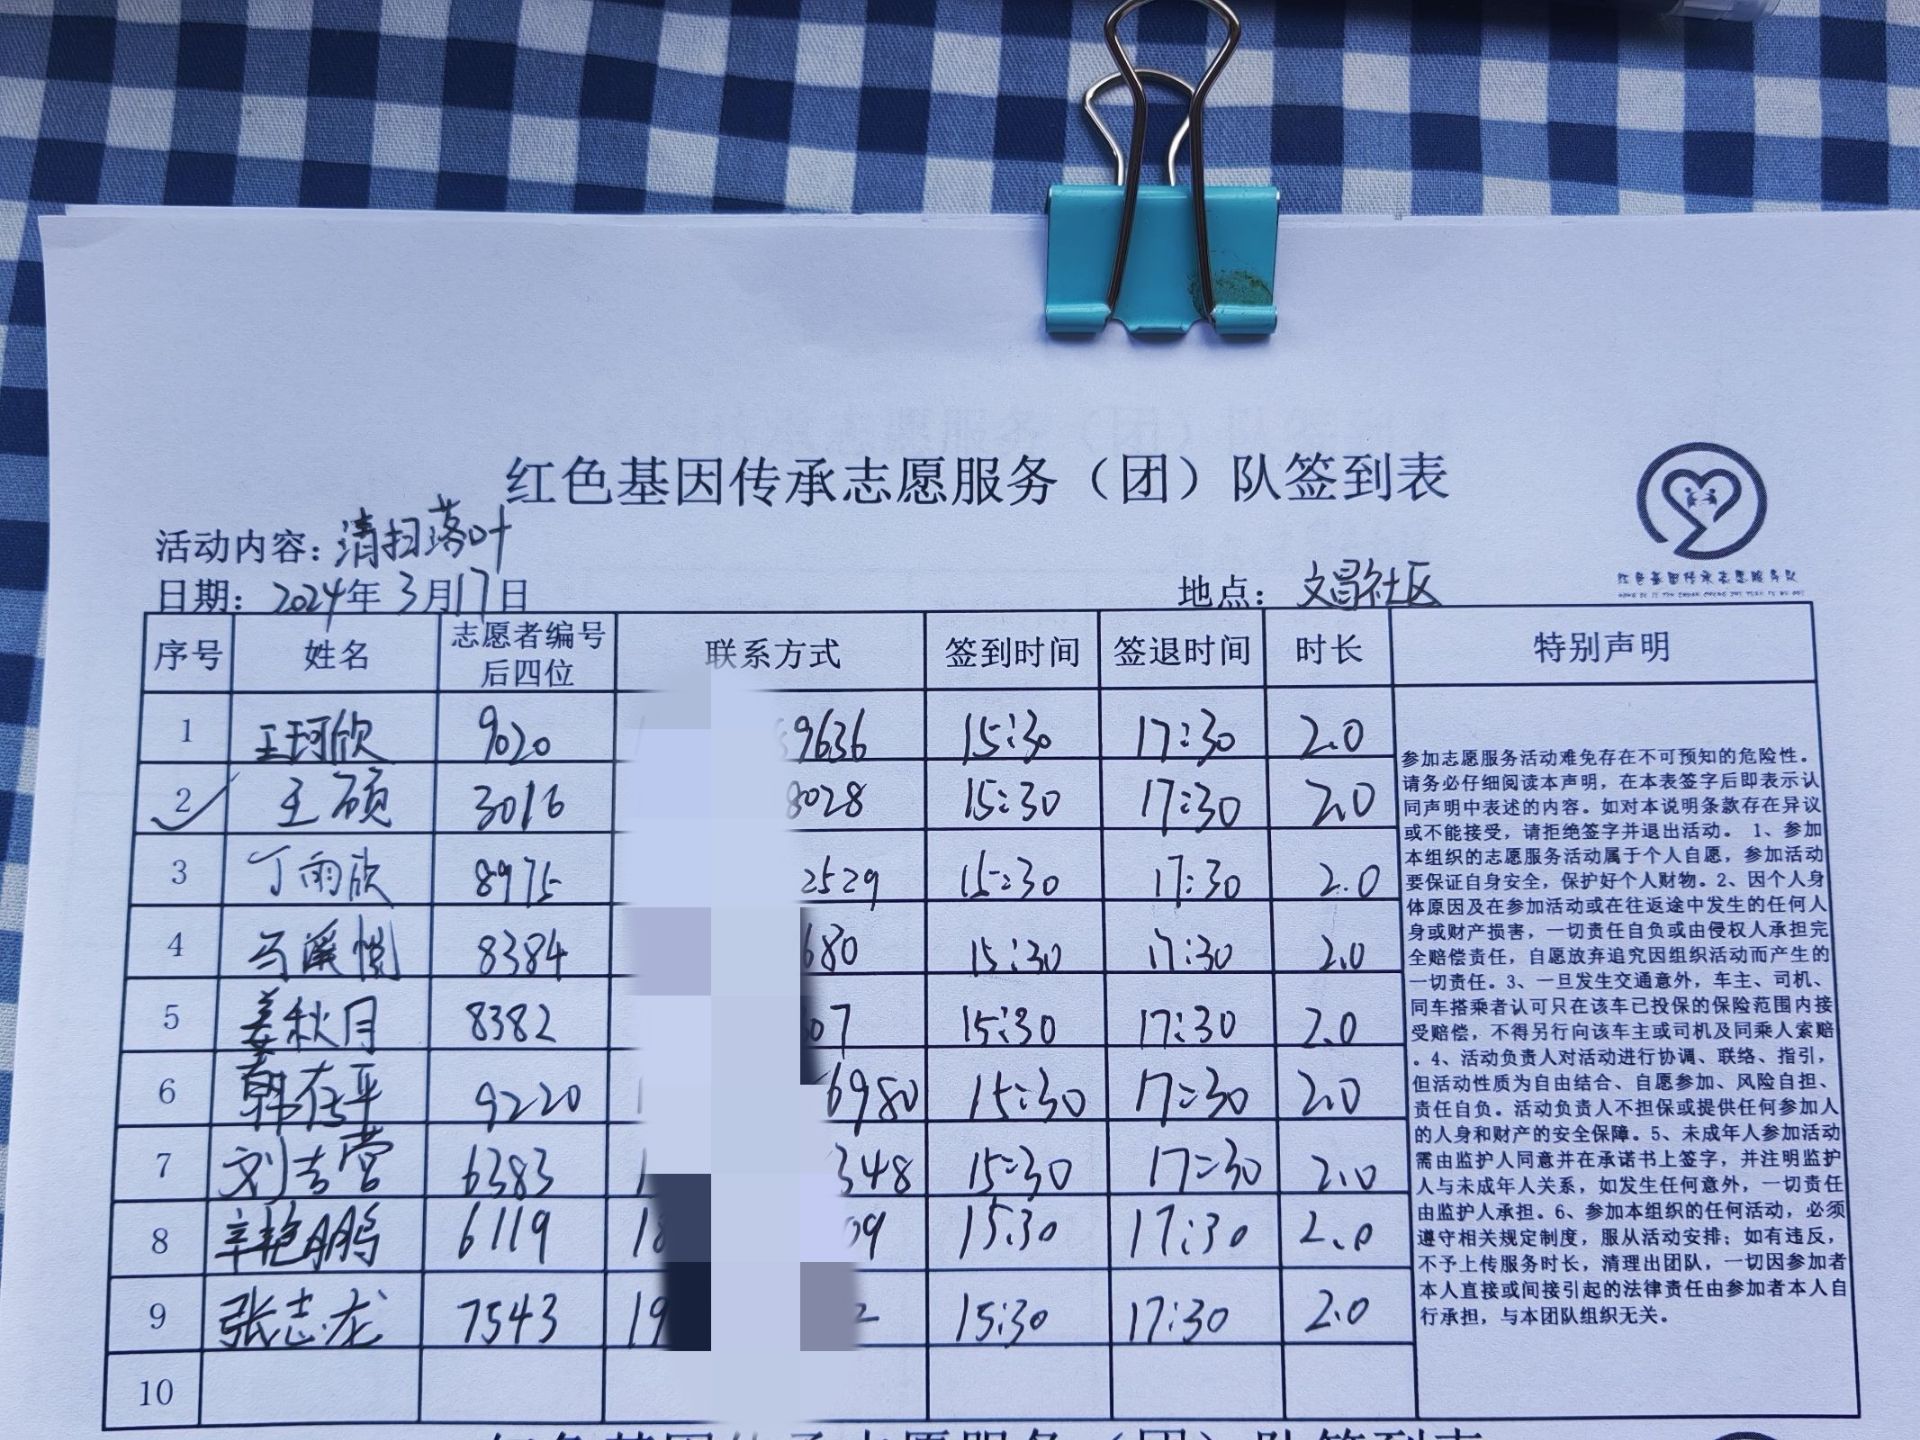 红色基因传承志愿服务（团）队签到表
红色基因传承志愿服务队
活动内容：清扫落叶
日期：2024年3月17日 地点：文昌社区
序号 姓名 志愿者编号后四位 联系方式 签到时间 签退时间 时长 特别声明
1 王珂欣 9020 9636 15:30 17:30 2.0
2 王硕 3016 8028 15:30 17:30 2.0
3 丁雨欣 8975 2529 15:30 17:30 2.0
4 马溪 8384 680 15:30 17:30 2.0
5 姜秋月 8382 07 15:30 17:30 2.0
6 韩存平 9220 6980 15:30 17:30 2.0
7 刘吉营 6383 1 348 15:30 17:30 2.0
8 辛艳鹏 6119 18 09 15:30 17:30 2.0
9 张志龙 7543 19 2 15:30 17:30 2.0
10
参加志愿服务活动难免存在不可预知的危险性。
请务必仔细阅读本声明，在本表签字后即表示认
同声明中表述的内容。如对本说明条款存在异议
或不能接受，请拒绝签字并退出活动。 1、参加
本组织的志愿服务活动属于个人自愿，参加活动
要保证自身安全，保护好个人财物。2、因个人身
体原因及在参加活动或在往返途中发生的任何人
身或财产损害，一切责任自负或由侵权人承担完
全赔偿责任，自愿放弃追究因组织活动而产生的
一切责任。3、一旦发生交通意外，车主、司机、
同车搭乘者认可只在该车已投保的保险范围内接
受赔偿，不得另行向该车主或司机及同乘人索赔
。4、活动负责人对活动进行协调、联络、指引，
但活动性质为自由结合、自愿参加、风险自担、
责任自负。活动负责人不担保或提供任何参加人
的人身和财产的安全保障。5、未成年人参加活动
需由监护人同意并在承诺书上签字，并注明监护
人与未成年人关系，如发生任何意外，一切责任
由监护人承担。6、参加本组织的任何活动，必须
遵守相关规定制度，服从活动安排；如有违反，
不予上传服务时长，清理出团队，一切因参加者
本人直接或间接引起的法律责任由参加者本人自
行承担，与本团队组织无关。
红色基因传承志愿服务（团）队签到表